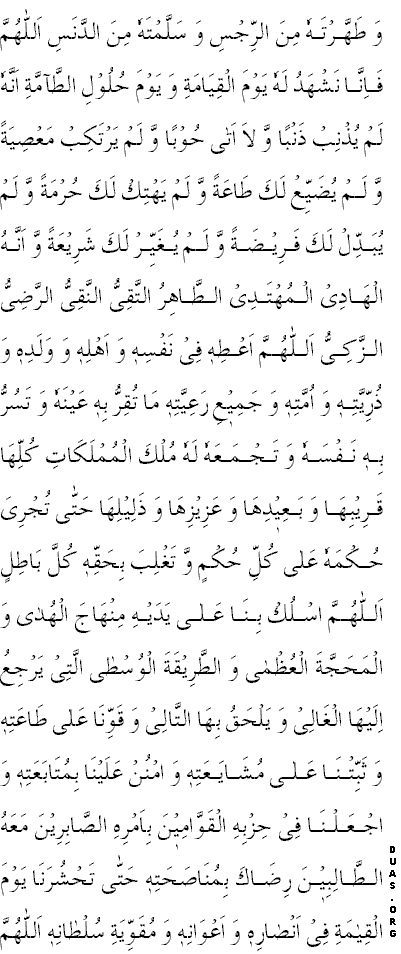 وَ طَهَّرْتَهٗ مِنَ الرِّجْسِ وَ سَلَّمْتَهٗ مِنَ الدَّنَسِ اَللّٰهُمَّ
فَاِنَّا نَشْهَدُ لَهٗ يَوْمَ الْقِيَامَةِ وَ يَوْمَ حُلُوْلِ الطَّآمَّةِ اَنَّهٗ
لَمْ يُذْنِبْ ذَنْبًا وَّ لَا اَتٰى حُوْبًا وَّ لَمْ يَرْتَكِبْ مَعْصِيَةً
وَّ لَمْ يُضَيِّعْ لَكَ طَاعَةً وَّ لَمْ يَهْتِكْ لَكَ حُرْمَةً وَّ لَمْ
يُبَدِّلْ لَكَ فَرِيْضَةً وَّ لَمْ يُغَيِّرْ لَكَ شَرِيْعَةً وَّ اَنَّهُ
الْهَادِىْ الْمُهْتَدِىْ الطَّاهِرُ التَّقِىُّ النَّقِىُّ الرَّضِىُّ
الزَّكِىُّ اَللّٰهُمَّ اَعْطِهٖ فِىْ نَفْسِهٖ وَ اَهْلِهٖ وَ وَلَدِهٖ وَ
ذُرِّيَّتِهٖ وَ اُمَّتِهٖ وَ جَمِيْعِ رَعِيَّتِهٖ مَا تُقِرُّ بِهٖ عَيْنَهٗ وَ تَسُرُّ
بِهٖ نَفْسَهٗ وَ تَجْمَعَهٗ لَهٗ مُلْكَ الْمُمْلَكَاتِ كُلِّهَا
قَرِيْبِهَا وَ بَعِيْدِهَا وَ عَزِيْزِهَا وَ ذَلِيْلِهَا حَتّٰى تُجْرِىَ
حُكْمَهٗ عَلٰى كُلِّ حُكْمٍ وَّ تَغْلِبَ بِحَقِّهٖ كُلَّ بَاطِلٍ
اَللّٰهُمَّ اسْلُكْ بِنَا عَلٰى يَدَيْهِ مِنْهَاجَ الْهُدٰى وَ
الْمَحَجَّةَ الْعُظْمٰى وَ الطَّرِيْقَةَ الْوُسْطٰى الَّتِىْ يَرْجِعُ
اِلَيْهَا الْغَالِىْ وَ يَلْحَقُ بِهَا التَّالِىْ وَ قَوِّنَا عَلٰى طَاعَتِهٖ
وَ ثَبِّتْنَا عَلٰى مُشَايَعَتِهٖ وَ امْنُنْ عَلَيْنَا بِمُتَابَعَتِهٖ وَ
اجْعَلْنَا فِىْ حِزْبِهِ الْقَوَّامِيْنَ بِاَمْرِهِ الصَّابِرِيْنَ مَعَهُ
الطَّالِبِيْنَ رِضَاكَ بِمُنَاصَحَتِهٖ حَتّٰى تَحْشُرَنَا يَوْمَ
الْقِيٰمَةِ فِىْ اَنْصَارِهٖ وَ اَعْوَانِهٖ وَ مُقَوِّيَةِ سُلْطَانِهٖ اَللّٰهُمَّ
DUAS.ORG